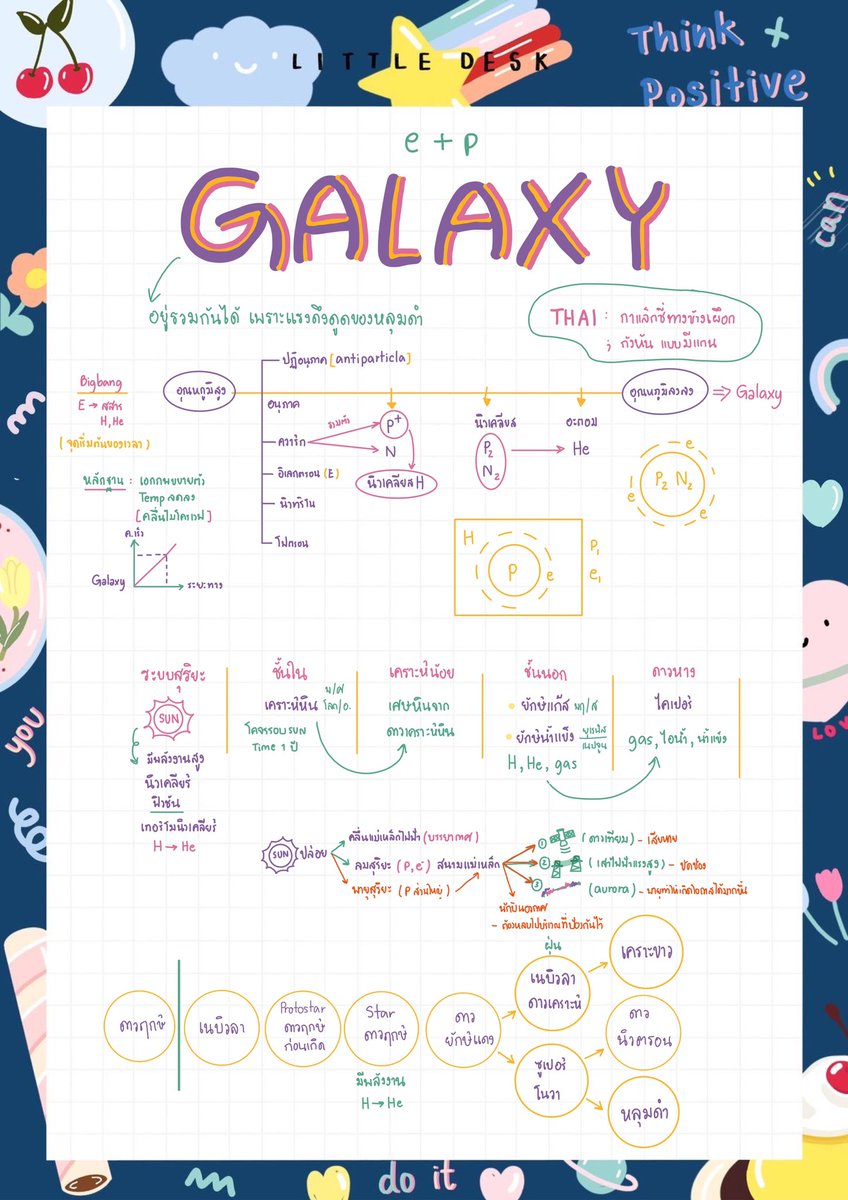 LITTLE DESK
Think +
Positive
can
you
LOVE
do it
e + p
GALAXY
อยู่รวมกันได้ เพราะแรงดึงดูดของหลุมดำ
THAI : กาแล็กซี่ทางช้างเผือก
; กังหัน แบบมีแกน
Bigbang
E → สสาร
H, He
(จุดเริ่มต้นของเวลา)
อุณหภูมิสูง
ปฏิอนุภาค [antiparticla]
อนุภาค
ควาร์ก
รวมตัว
P+
N
นิวเคลียส H
อิเลกตรอน (E)
นิวทริโน
โฟตรอน
นิวเคลียส
P2
N2
อะตอม
He
อุณหภูมิลดลง
⇒ Galaxy
e
P2 N2
e
e
H
P
e
P1
e1
หลักฐาน : เอกภพขยายตัว
Temp ลดลง
[คลื่นไมโครเวฟ]
ค.เร็ว
Galaxy
ระยะทาง
ระบบสุริยะ
SUN
มีพลังงานสูง
นิวเคลียร์
ฟิวชัน
เทอร์โมนิวเคลียร์
H → He
ชั้นใน
เคราะห์หิน
พ/ศ
โลก/อ.
โคจรรอบ SUN
Time 1 ปี
เคราะห์น้อย
เศษหินจาก
ดาวเคราะห์หิน
ชั้นนอก
ยักษ์แก๊ส พฤ/ส
ยักษ์น้ำแข็ง ยูเรนัส
เนปจูน
H, He, gas
ดาวหาง
ไคเปอร์
gas, ไอน้ำ, น้ำแข็ง
SUN ปล่อย
คลื่นแม่เหล็กไฟฟ้า (บรรยากาศ)
ลมสุริยะ (P, e-) สนามแม่เหล็ก
พายุสุริยะ (P ส่วนใหญ่)
1 (ดาวเทียม) - เสียหาย
2 (เสาไฟฟ้าแรงสูง) - ขัดข้อง
3 (aurora) - พายุทำให้เกิดโอกาสได้มากขึ้น
นักบินอวกาศ
- ต้องหลบไปบริเวณที่ป้องกันไว้
ดาวฤกษ์
เนบิวลา
Protostar
ดาวฤกษ์
ก่อนเกิด
Star
ดาวฤกษ์
มีพลังงาน
H → He
ดาว
ยักษ์แดง
ฝุ่น
เนบิวลา
ดาวเคราะห์
เคราะขาว
ซูเปอร์
โนวา
ดาว
นิวตรอน
หลุมดำ